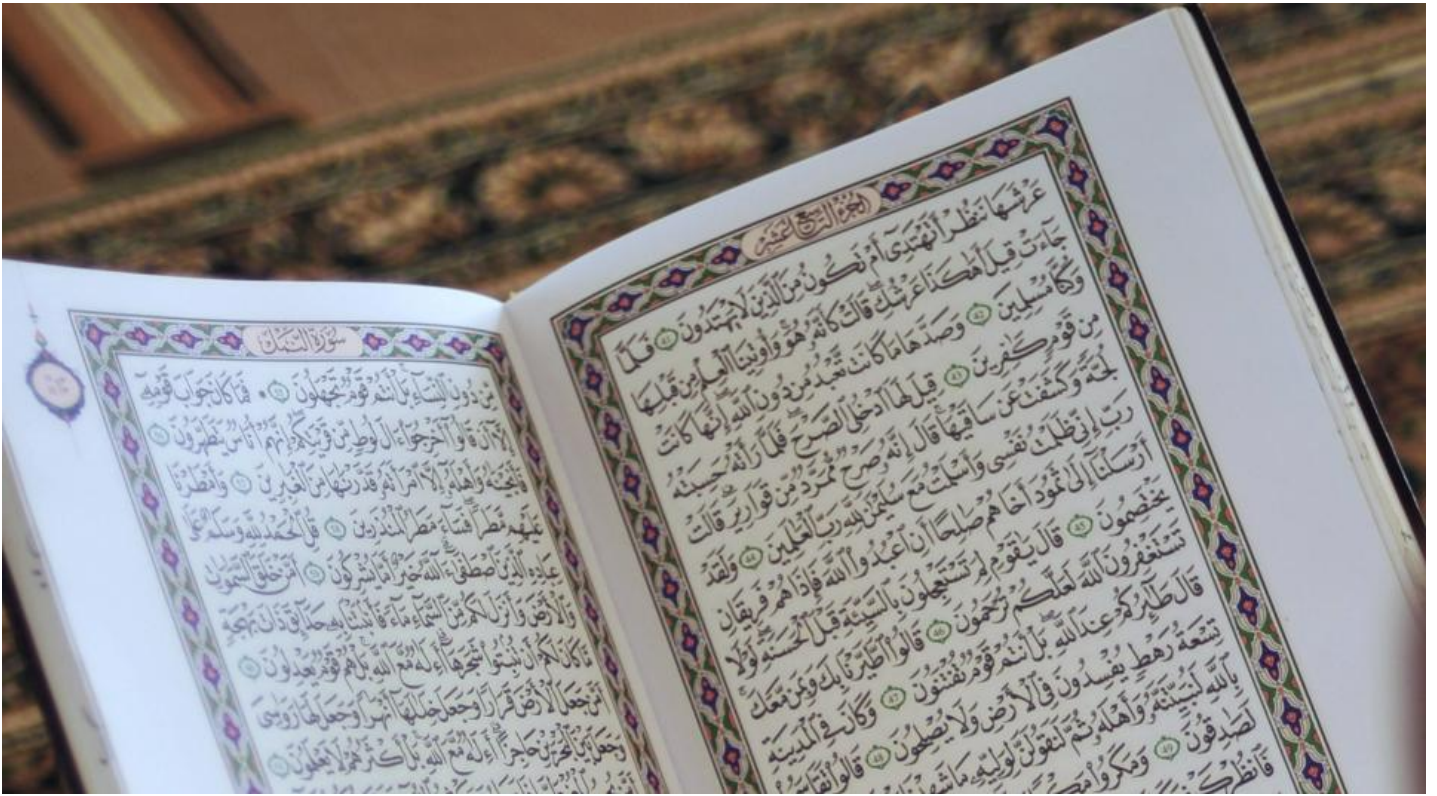 الجزء التاسع عشر
عَرْشَهَا نَنظُرْ أَتَهْتَدِىٓ أَمْ تَكُونُ مِنَ ٱلَّذِينَ لَا يَهْتَدُونَ ٤١ فَلَمَّا
جَآءَتْ قِيلَ أَهَٰكَذَا عَرْشُكِ ۖ قَالَتْ كَأَنَّهُۥ هُوَ ۚ وَأُوتِينَا ٱلْعِلْمَ مِن قَبْلِهَا
وَكُنَّا مُسْلِمِينَ ٤٢ وَصَدَّهَا مَا كَانَت تَّعْبُدُ مِن دُونِ ٱللَّهِ ۖ إِنَّهَا كَانَتْ
مِن قَوْمٍ كَٰفِرِينَ ٤٣ قِيلَ لَهَا ٱدْخُلِى ٱلصَّرْحَ ۖ فَلَمَّا رَأَتْهُ حَسِبَتْهُ
لُجَّةً وَكَشَفَتْ عَن سَاقَيْهَا ۚ قَالَ إِنَّهُۥ صَرْحٌ مُّمَرَّدٌ مِّن قَوَارِيرَ ۗ قَالَتْ
رَبِّ إِنِّى ظَلَمْتُ نَفْسِى وَأَسْلَمْتُ مَعَ سُلَيْمَٰنَ لِلَّهِ رَبِّ ٱلْعَٰلَمِينَ ٤٤ وَلَقَدْ
أَرْسَلْنَآ إِلَىٰ ثَمُودَ أَخَاهُمْ صَٰلِحًا أَنِ ٱعْبُدُوا۟ ٱللَّهَ فَإِذَا هُمْ فَرِيقَانِ
يَخْتَصِمُونَ ٤٥ قَالَ يَٰقَوْمِ لِمَ تَسْتَعْجِلُونَ بِٱلسَّيِّئَةِ قَبْلَ ٱلْحَسَنَةِ ۖ لَوْلَا
تَسْتَغْفِرُونَ ٱللَّهَ لَعَلَّكُمْ تُرْحَمُونَ ٤٦ قَالُوا۟ ٱطَّيَّرْنَا بِكَ وَبِمَن مَّعَكَ ۚ
قَالَ طَٰٓئِرُكُمْ عِندَ ٱللَّهِ ۖ بَلْ أَنتُمْ قَوْمٌ تُفْتَنُونَ ٤٧ وَكَانَ فِى ٱلْمَدِينَةِ
تِسْعَةُ رَهْطٍ يُفْسِدُونَ فِى ٱلْأَرْضِ وَلَا يُصْلِحُونَ ٤٨ قَالُوا۟ تَقَاسَمُوا۟
بِٱللَّهِ لَنُبَيِّتَنَّهُۥ وَأَهْلَهُۥ ثُمَّ لَنَقُولَنَّ لِوَلِيِّهِۦ مَا شَهِدْنَا
لَصَٰدِقُونَ ٤٩ وَمَكَرُوا۟ مَكْرًا
فَٱنظُرْ كَيْفَ
سورة النمل
مِّن دُونِ ٱلنِّسَآءِ ۚ بَلْ أَنتُمْ قَوْمٌ تَجْهَلُونَ ٥٥ فَمَا كَانَ جَوَابَ قَوْمِهِۦٓ
إِلَّآ أَن قَالُوٓا۟ أَخْرِجُوٓا۟ ءَالَ لُوطٍ مِّن قَرْيَتِكُمْ ۖ إِنَّهُمْ أُنَاسٌ يَتَطَهَّرُونَ ٥٦
فَأَنجَيْنَٰهُ وَأَهْلَهُۥٓ إِلَّا ٱمْرَأَتَهُۥ قَدَّرْنَٰهَا مِنَ ٱلْغَٰبِرِينَ ٥٧ وَأَمْطَرْنَا
عَلَيْهِم مَّطَرًا ۖ فَسَآءَ مَطَرُ ٱلْمُنذَرِينَ ٥٨ قُلِ ٱلْحَمْدُ لِلَّهِ وَسَلَٰمٌ عَلَىٰ
عِبَادِهِ ٱلَّذِينَ ٱصْطَفَىٰٓ ۗ ءَآللَّهُ خَيْرٌ أَمَّا يُشْرِكُونَ ٥٩ أَمَّنْ خَلَقَ ٱلسَّمَٰوَٰتِ
وَٱلْأَرْضَ وَأَنزَلَ لَكُم مِّنَ ٱلسَّمَآءِ مَآءً فَأَنۢبَتْنَا بِهِۦ حَدَآئِقَ ذَاتَ بَهْجَةٍ
مَّا كَانَ لَكُمْ أَن تُنۢبِتُوا۟ شَجَرَهَآ ۗ أَءِلَٰهٌ مَّعَ ٱللَّهِ ۚ بَلْ هُمْ قَوْمٌ يَعْدِلُونَ ٦٠
أَمَّن جَعَلَ ٱلْأَرْضَ قَرَارًا وَجَعَلَ خِلَٰلَهَآ أَنْهَٰرًا وَجَعَلَ لَهَا رَوَٰسِىَ
وَجَعَلَ بَيْنَ ٱلْبَحْرَيْنِ حَاجِزًا ۗ أَءِلَٰهٌ مَّعَ ٱللَّهِ ۚ بَلْ أَكْثَرُهُمْ لَا يَعْلَمُونَ ٦١